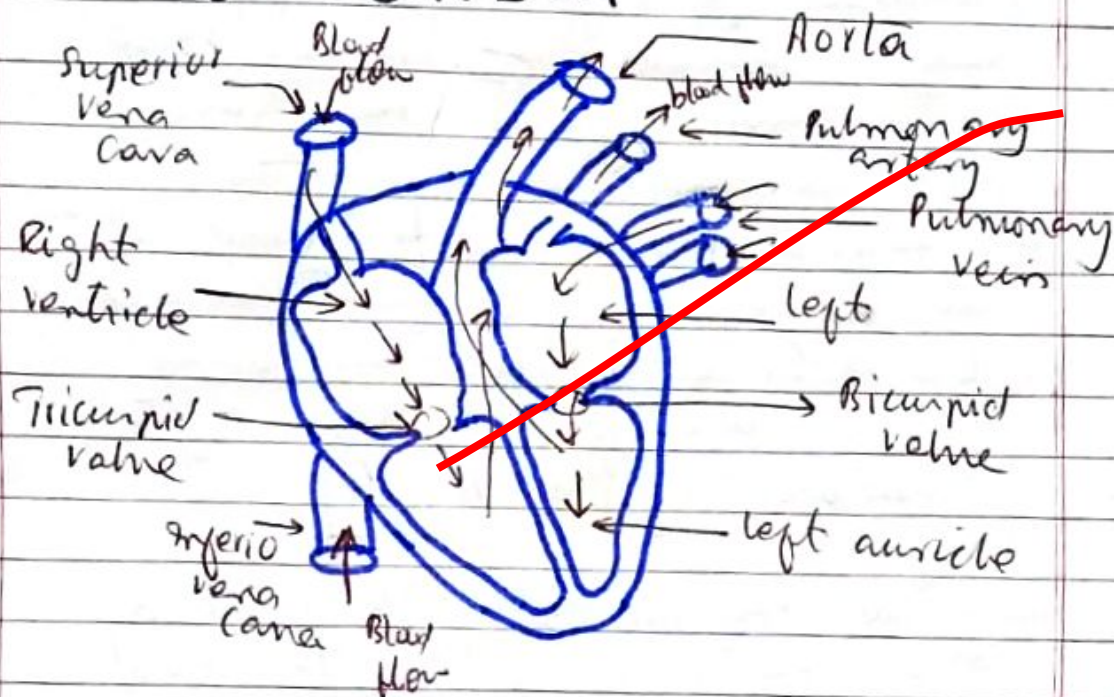 Superior
vena
Cava
Blood
flow
Aorta
blood flow
Pulmonary
artery
Pulmonary
vein
Right
ventricle
left
Tricuspid
valve
Bicuspid
valve
left auricle
Inferio
vena
Cava
Blood
flow